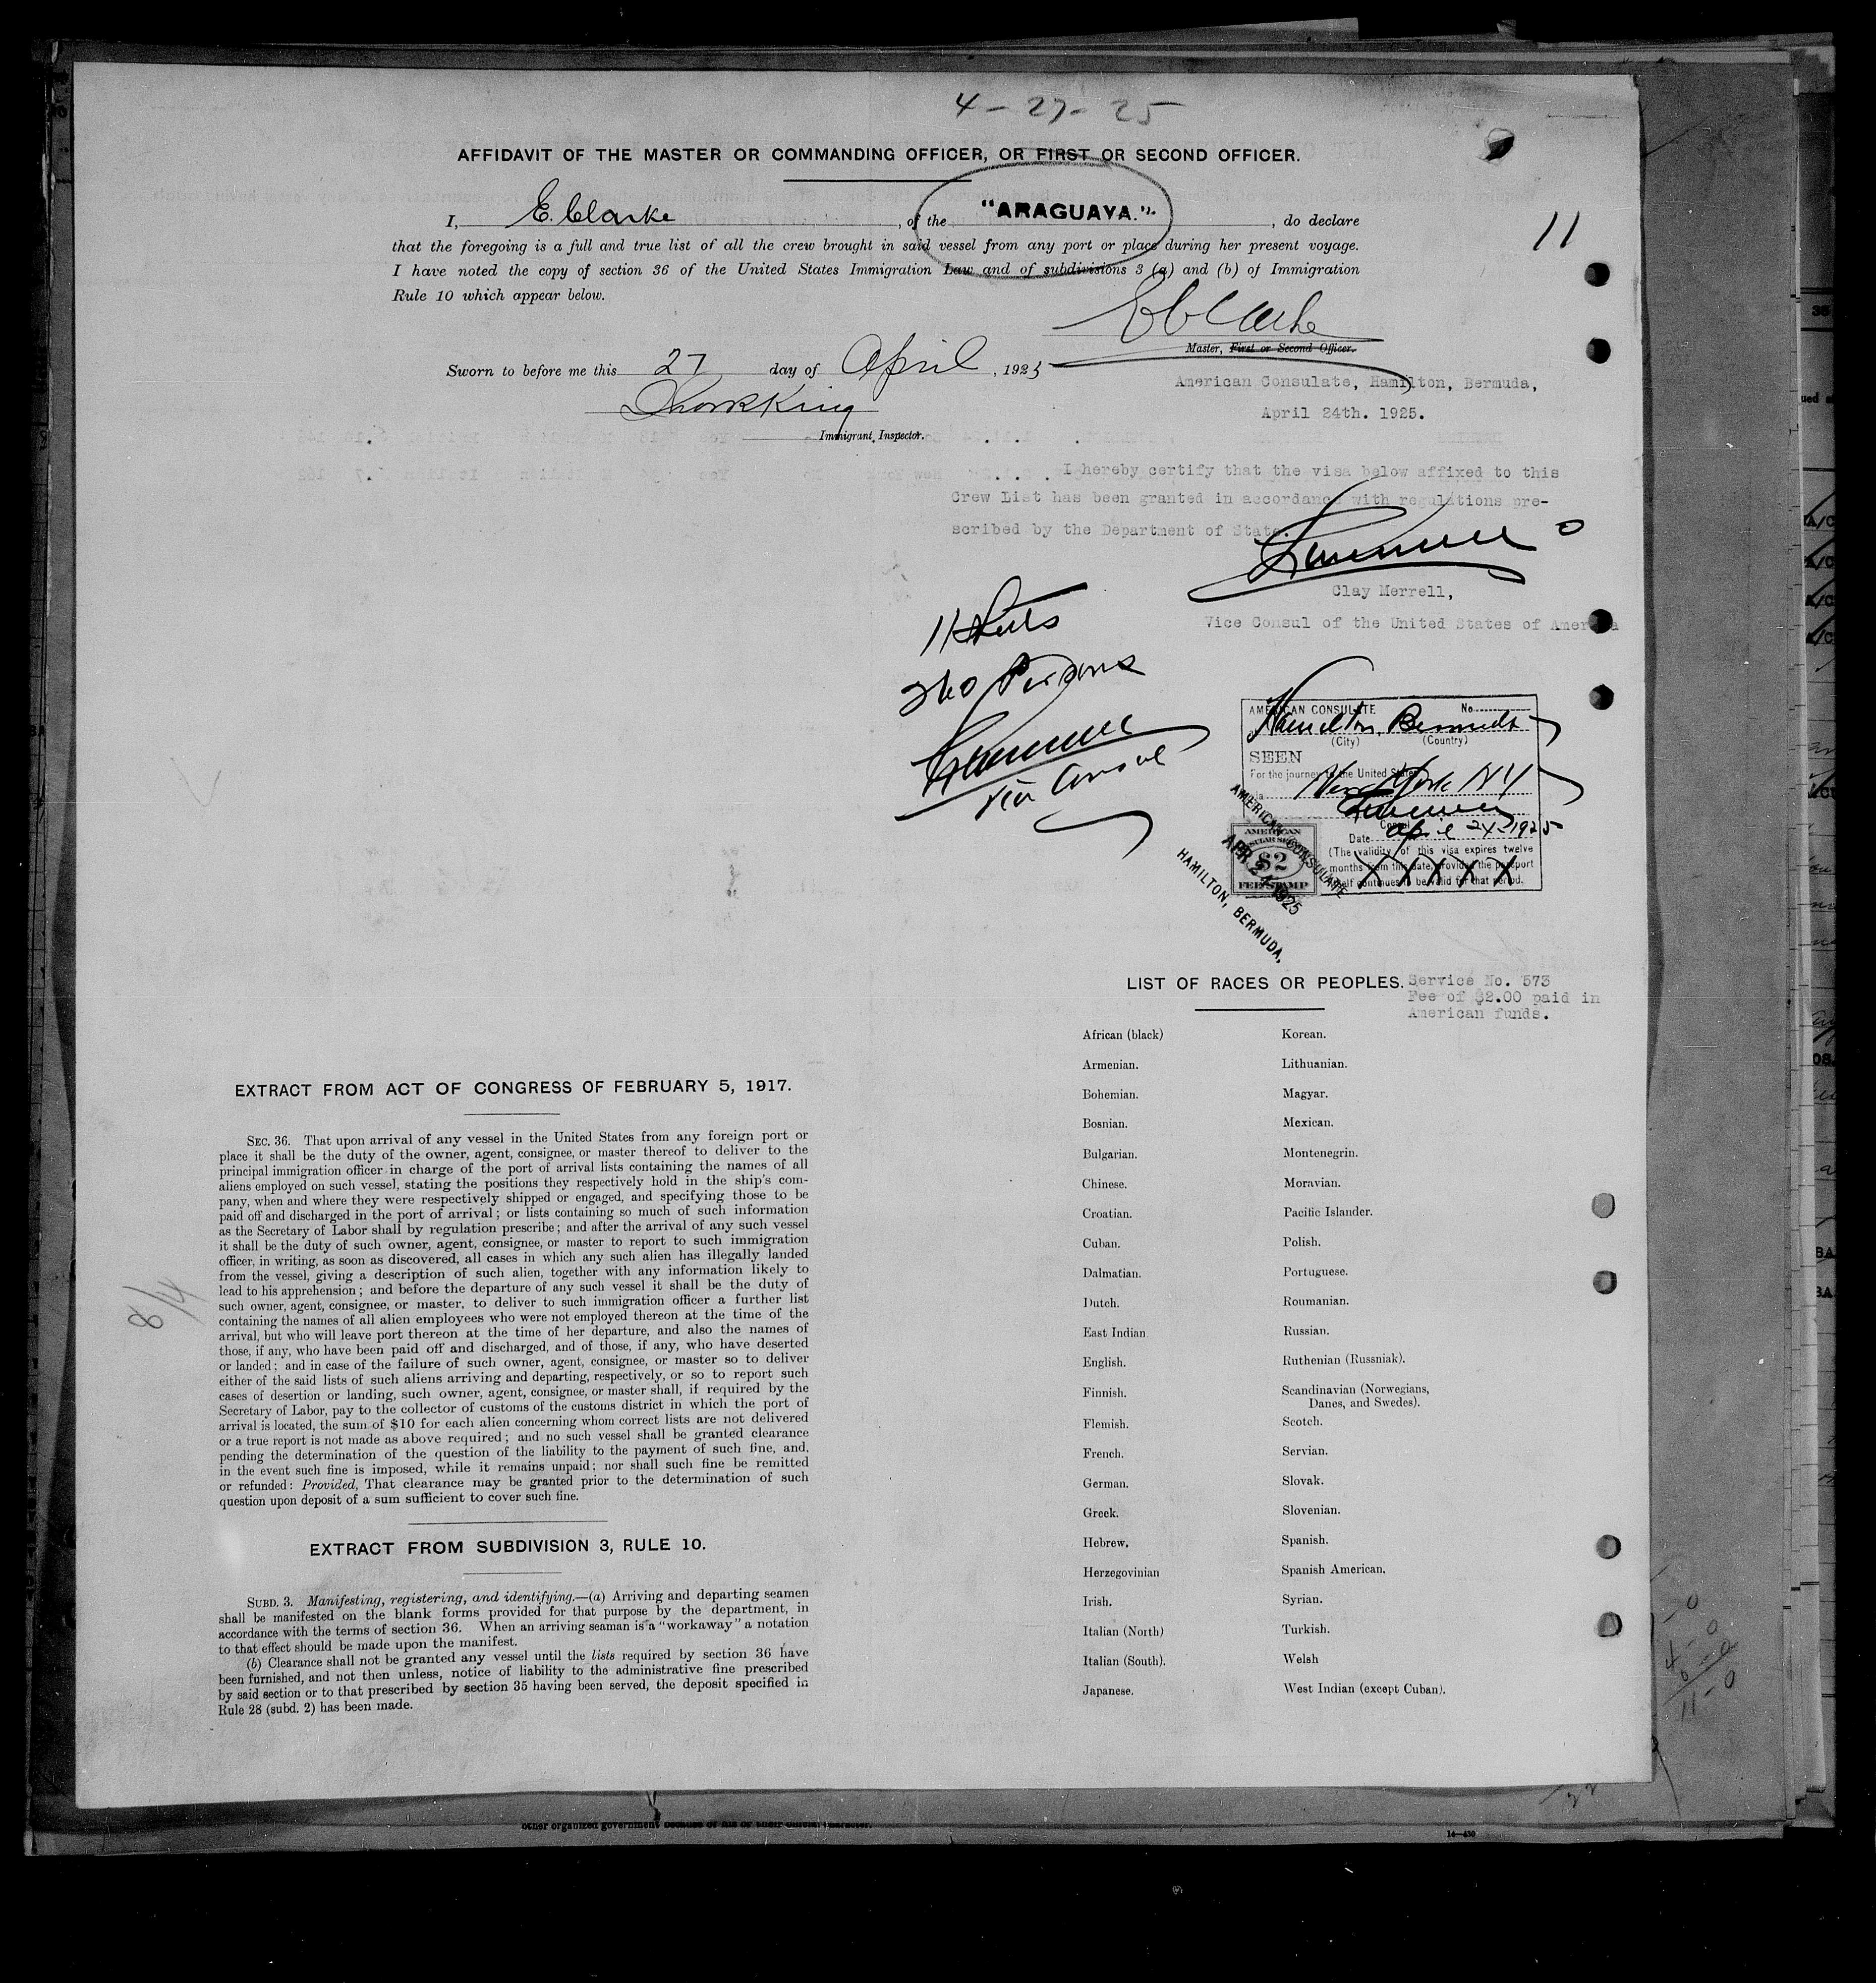 4-27-25
AFFIDAVIT OF THE MASTER OR COMMANDING OFFICER, OR FIRST OR SECOND OFFICER.
I, E. Clarke, of the "ARAGUAYA.", do declare
that the foregoing is a full and true list of all the crew brought in said vessel from any port or place during her present voyage.
I have noted the copy of section 36 of the United States Immigration Law and of subdivisions 3 (a) and (b) of Immigration
Rule 10 which appear below.
11
Master, First or Second Officer.
Sworn to before me this 27 day of April, 1925
Immigrant Inspector.
American Consulate, Hamilton, Bermuda,
April 24th. 1925.
I hereby certify that the visa below affixed to this
Crew List has been granted in accordance with regulations pre-
scribed by the Department of State.
Clay Merrell,
Vice Consul of the United States of America
AMERICAN CONSULATE No.
Hamilton, Bermuda
(City) (Country)
SEEN
For the journey to the United States
New York NY
Consul
Date April 24-1925
(The validity of this visa expires twelve
months from this date, provided the passport
itself continues to be valid for that period.
XXXXX
AMERICAN
$2
FEE STAMP
AMERICAN CONSULATE
APR 24 1925
HAMILTON, BERMUDA,
LIST OF RACES OR PEOPLES.
Service No. 573
Fee of $2.00 paid in
American funds.
African (black) Korean.
Armenian. Lithuanian.
Bohemian. Magyar.
Bosnian. Mexican.
Bulgarian. Montenegrin.
Chinese. Moravian.
Croatian. Pacific Islander.
Cuban. Polish.
Dalmatian. Portuguese.
Dutch. Roumanian.
East Indian Russian.
English. Ruthenian (Russniak).
Finnish. Scandinavian (Norwegians,
Danes, and Swedes).
Flemish. Scotch.
French. Servian.
German. Slovak.
Greek. Slovenian.
Hebrew. Spanish.
Herzegovinian Spanish American.
Irish. Syrian.
Italian (North) Turkish.
Italian (South). Welsh
Japanese. West Indian (except Cuban).
EXTRACT FROM ACT OF CONGRESS OF FEBRUARY 5, 1917.
SEC. 36. That upon arrival of any vessel in the United States from any foreign port or
place it shall be the duty of the owner, agent, consignee, or master thereof to deliver to the
principal immigration officer in charge of the port of arrival lists containing the names of all
aliens employed on such vessel, stating the positions they respectively hold in the ship's com-
pany, when and where they were respectively shipped or engaged, and specifying those to be
paid off and discharged in the port of arrival; or lists containing so much of such information
as the Secretary of Labor shall by regulation prescribe; and after the arrival of any such vessel
it shall be the duty of such owner, agent, consignee, or master to report to such immigration
officer, in writing, as soon as discovered, all cases in which any such alien has illegally landed
from the vessel, giving a description of such alien, together with any information likely to
lead to his apprehension; and before the departure of any such vessel it shall be the duty of
such owner, agent, consignee, or master, to deliver to such immigration officer a further list
containing the names of all alien employees who were not employed thereon at the time of the
arrival, but who will leave port thereon at the time of her departure, and also the names of
those, if any, who have been paid off and discharged, and of those, if any, who have deserted
or landed; and in case of the failure of such owner, agent, consignee, or master so to deliver
either of the said lists of such aliens arriving and departing, respectively, or so to report such
cases of desertion or landing, such owner, agent, consignee, or master shall, if required by the
Secretary of Labor, pay to the collector of customs of the customs district in which the port of
arrival is located, the sum of $10 for each alien concerning whom correct lists are not delivered
or a true report is not made as above required; and no such vessel shall be granted clearance
pending the determination of the question of the liability to the payment of such fine, and,
in the event such fine is imposed, while it remains unpaid; nor shall such fine be remitted
or refunded: Provided, That clearance may be granted prior to the determination of such
question upon deposit of a sum sufficient to cover such fine.
EXTRACT FROM SUBDIVISION 3, RULE 10.
SUBD. 3. Manifesting, registering, and identifying.—(a) Arriving and departing seamen
shall be manifested on the blank forms provided for that purpose by the department, in
accordance with the terms of section 36. When an arriving seaman is a "workaway" a notation
to that effect should be made upon the manifest.
(b) Clearance shall not be granted any vessel until the lists required by section 36 have
been furnished, and not then unless, notice of liability to the administrative fine prescribed
by said section or to that prescribed by section 35 having been served, the deposit specified in
Rule 28 (subd. 2) has been made.
other organized government because of his or their official character.
14—430